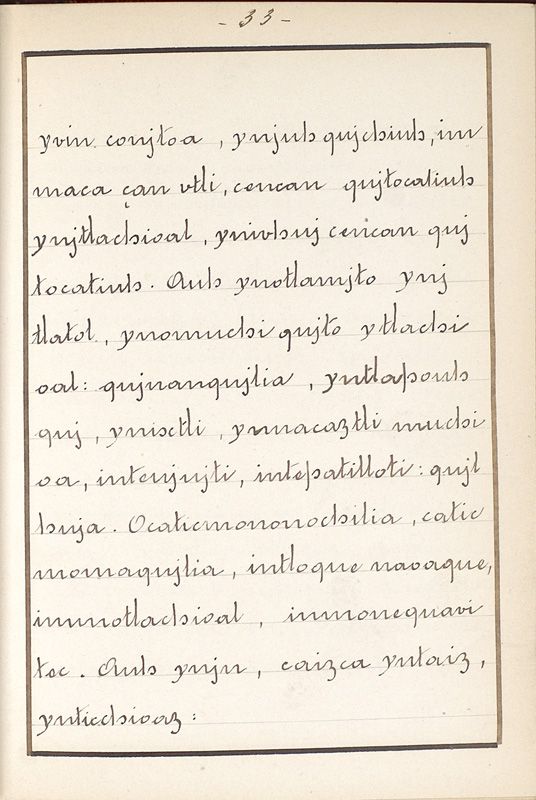 - 33 -
yvin. conjtoa , ynjuh qujchiuh, im
maca çan vtli, cencan qujtocatiuh
ynjtlachioal , ynivhnj cencan quj
tocatiuh . Auh ynotlamjto ynj
tlatol., ynomuchi qujto ytlachi
oal: qujnanqujlia , yntlapouh
quj , ynixtli , ynmacaztli muchi
oa, intenjujti, intepatilloti: qujl
huja . Ocaticmononochilia , catic
momaqujlia , intloque naoaque,
inmotlachioal , inmonequavi
tec . Auh ynjn , caizca yntaiz ,
ynticchioaz :